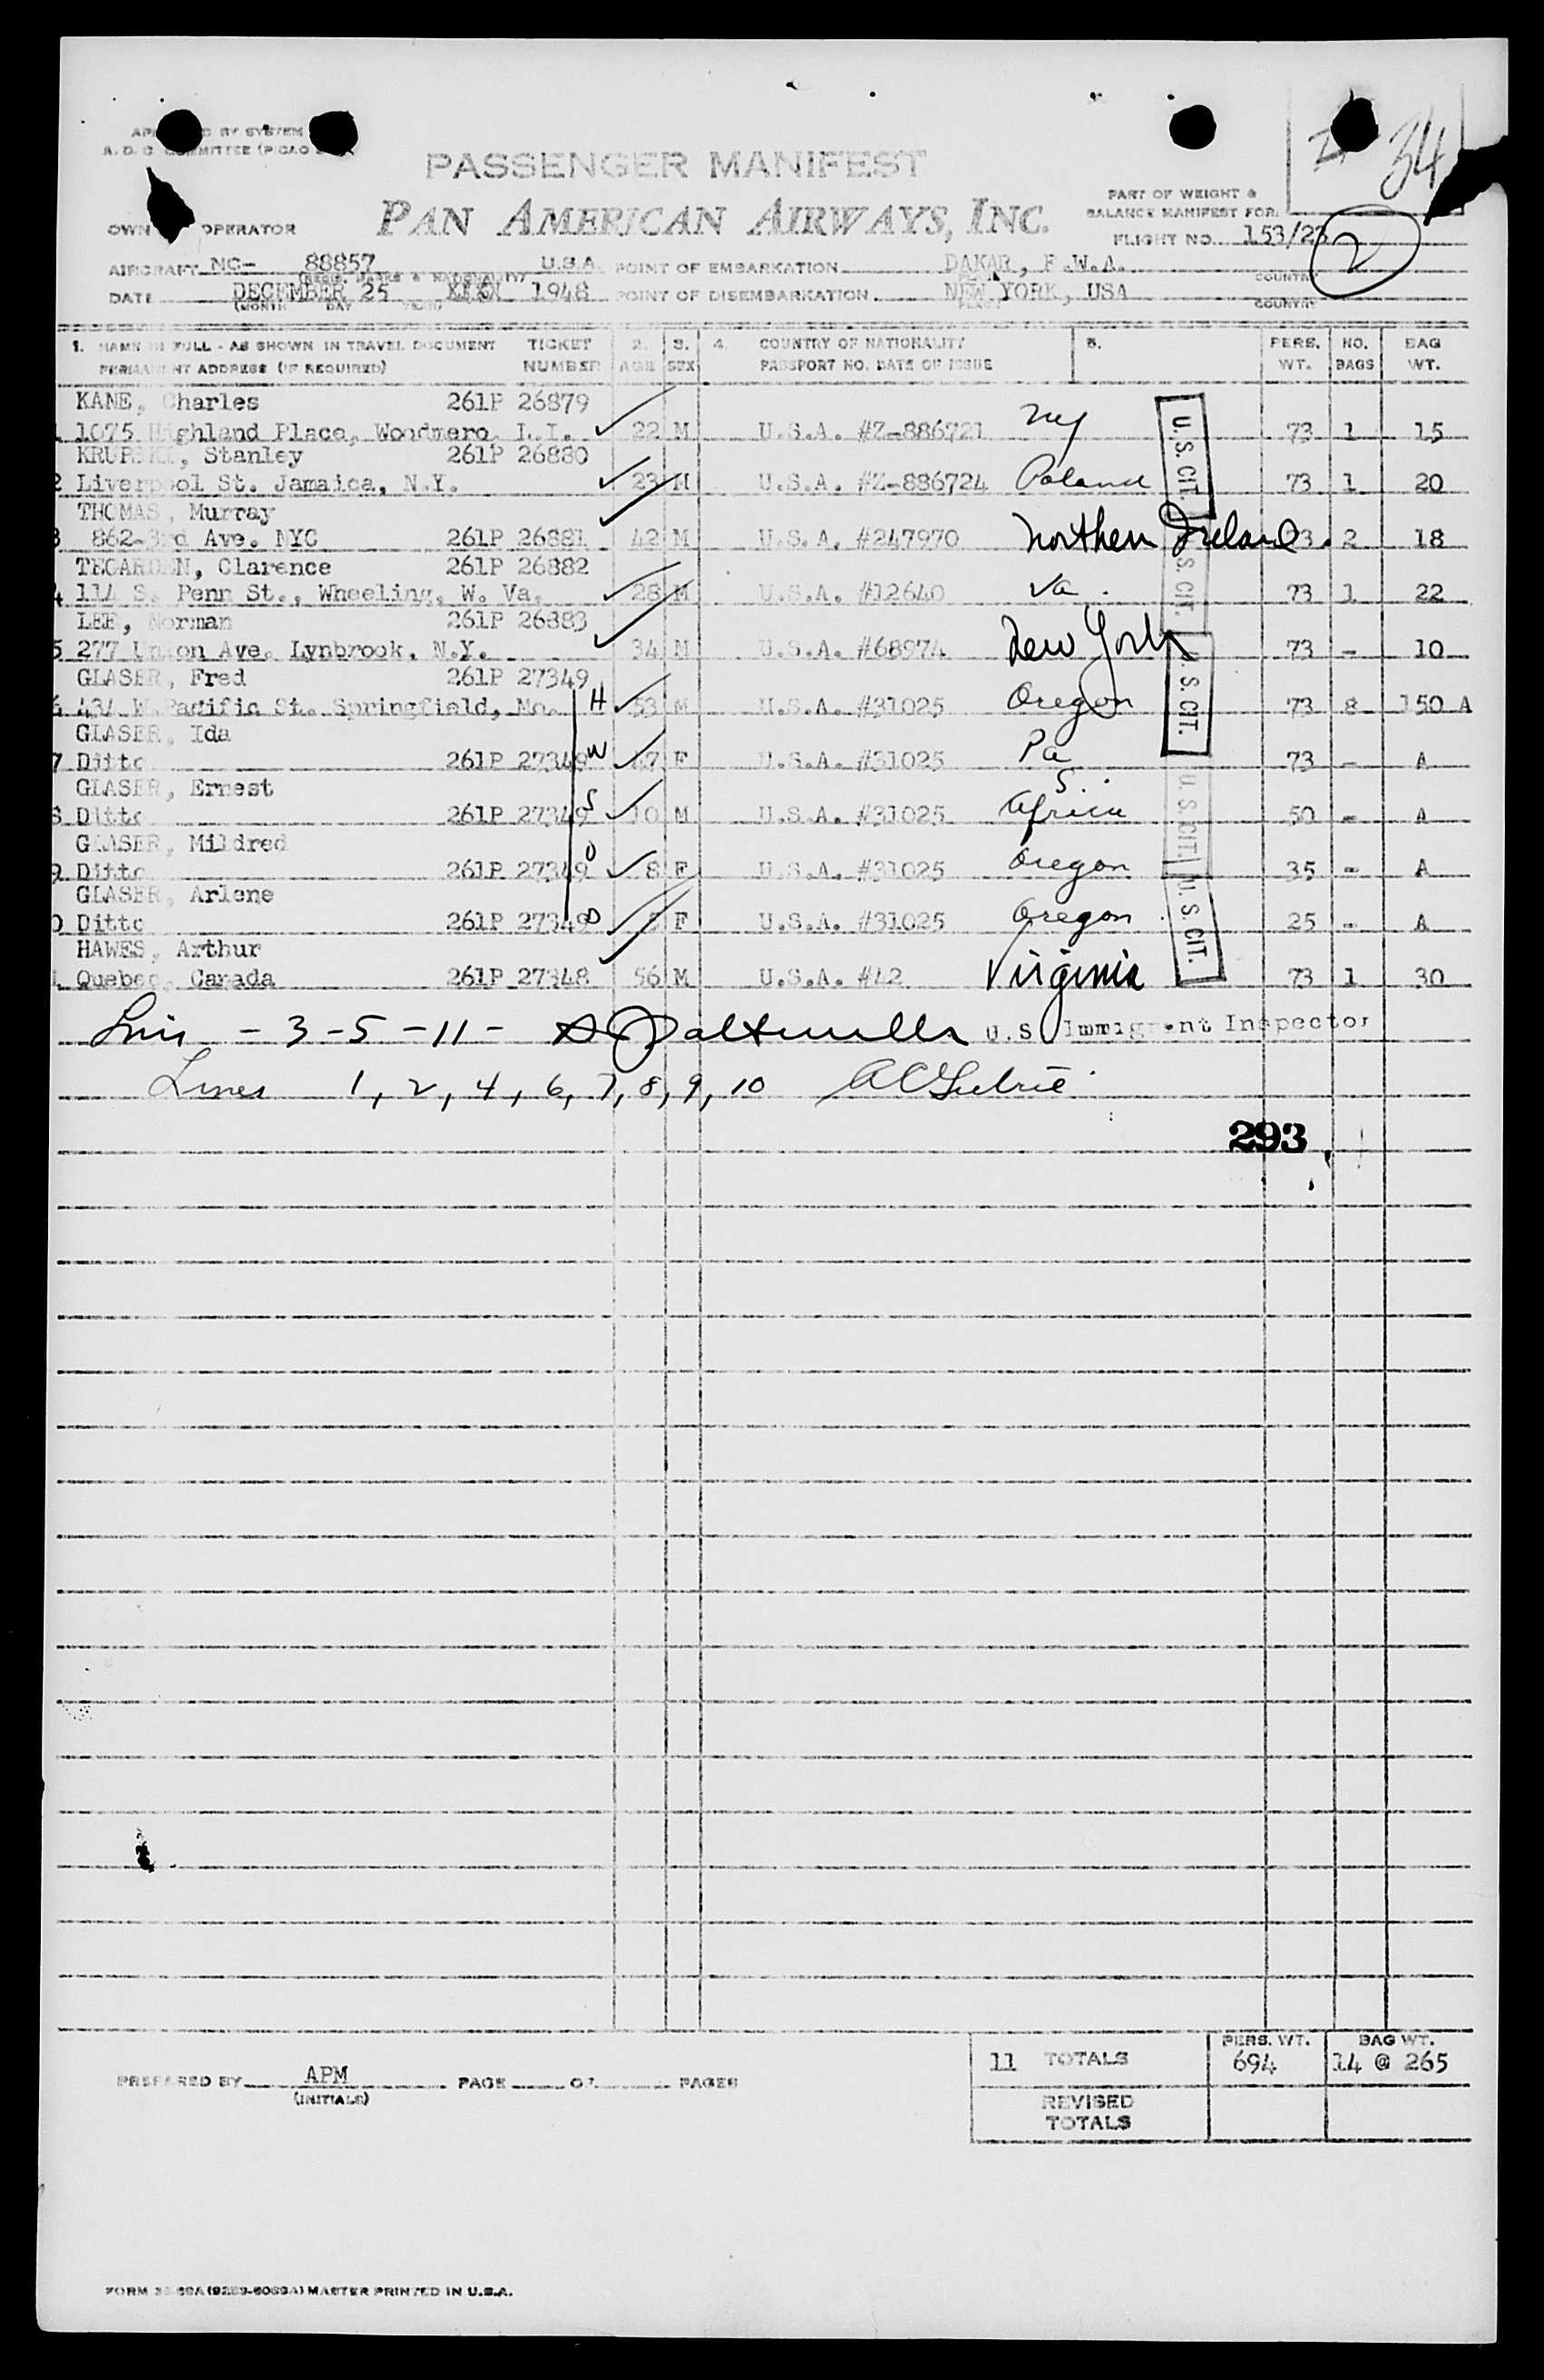 BY SYSTEM
PASSENGER MANIFEST
PAN AMERICAN AIRWAYS, INC.
34
PART OF WEIGHT &
BALANCE MANIFEST FOR:
OPERATOR
FLIGHT NO. 153/
2
AIRCRAFT NC- 88857 U.S.A. POINT OF EMBARKATION DAKAR, F.W.A. COUNTRY
DATE DECEMBER 25 1948 POINT OF DISEMBARKATION NEW YORK, USA COUNTRY
(MONTH DAY
1. NAME IN FULL - AS SHOWN IN TRAVEL DOCUMENT TICKET 2. 3. 4. COUNTRY OF NATIONALITY 5. PERS. NO. BAG
PERMANENT ADDRESS (IF REQUIRED) NUMBER AGE SEX PASSPORT NO. DATE OF ISSUE WT. BAGS WT.
KANE, Charles 261P 26879
1075 Highland Place, Woodmere, L.I. 22 M U.S.A. #Z-886721 NY U.S. CIT. 73 1 15
Stanley 261P 26880
2 Liverpool St. Jamaica, N.Y. 23 M U.S.A. #Z-886724 Poland 73 1 20
THOMAS, Murray
3 862-3rd Ave. NYC 261P 26881 42 M U.S.A. #247970 Northern Ireland 73 2 18
TEGARDEN, Clarence 261P 26882
4 114 S. Penn St., Wheeling, W. Va. 28 M U.S.A. #12640 Va. S. CIT. 73 1 22
LEE, Norman 261P 26883
5 277 Union Ave. Lynbrook, N.Y. 34 M U.S.A. #68974 New York 73 - 10
GLASER, Fred 261P 27349
6 434 W. Pacific St. Springfield, Mo. H 53 M U.S.A. #31025 Oregon U.S. CIT. 73 8 150 A
GLASER, Ida
7 Ditto 261P 27349 W 7 F U.S.A. #31025 Pa 73 - A
GLASER, Ernest
8 Ditto 261P 27349 S 10 M U.S.A. #31025 S. Africa U.S. CIT. 50 - A
GLASER, Mildred
9 Ditto 261P 27349 D 8 F U.S.A. #31025 Oregon 35 - A
GLASER, Arlene
0 Ditto 261P 27349 D F U.S.A. #31025 Oregon U.S. CIT. 25 - A
HAWES, Arthur
Quebec, Canada 261P 27348 56 M U.S.A. #42 Virginia 73 1 30
- 3 - 5 - 11 - U.S. Immigrant Inspector
Lines 1, 2, 4, 6, 7, 8, 9, 10
293
11 TOTALS PERS. WT. 694 BAG WT. 14 @ 265
PREPARED BY APM PAGE OF PAGES
(INITIALS)
REVISED
TOTALS
FORM MASTER PRINTED IN U.S.A.